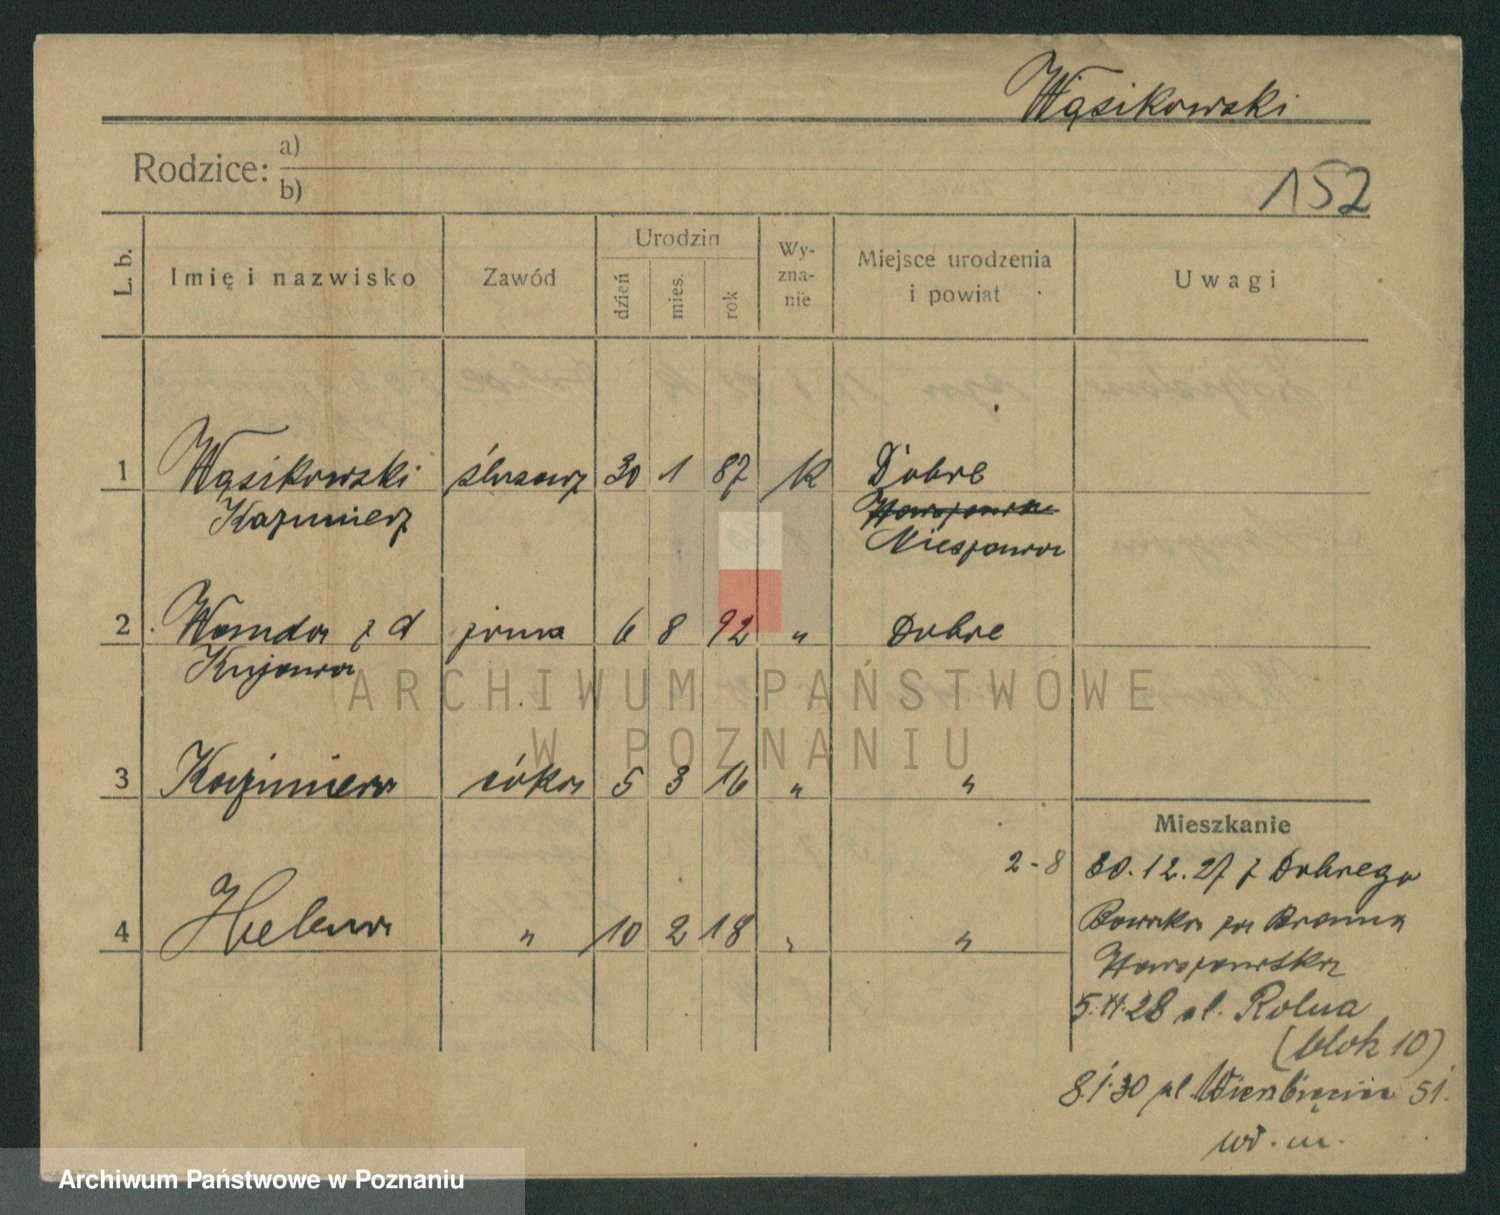 Wąsikowski
Rodzice: a)
b)
152
L. b. Imię i nazwisko Zawód Urodzin dzień mies. rok Wy-zna-nie Miejsce urodzenia i powiat Uwagi
1 Wąsikowski ślusarz 30 1 87 K Dobre
Kazimierz
Nieszawa
2 Wanda z d żona 6 8 92 " Dobre
Kujawa
3 Kazimiera córka 5 3 16 " "
Mieszkanie
2-8 30.12.27 z Dobrego
4 Helena " 10 2 18 " "
za Bramą
Warszawską
28 ul. Rolna
(blok 10)
8.1.30 ul. Wierzbięcice 51.
ARCHIWUM PAŃSTWOWE
W POZNANIU
Archiwum Państwowe w Poznaniu